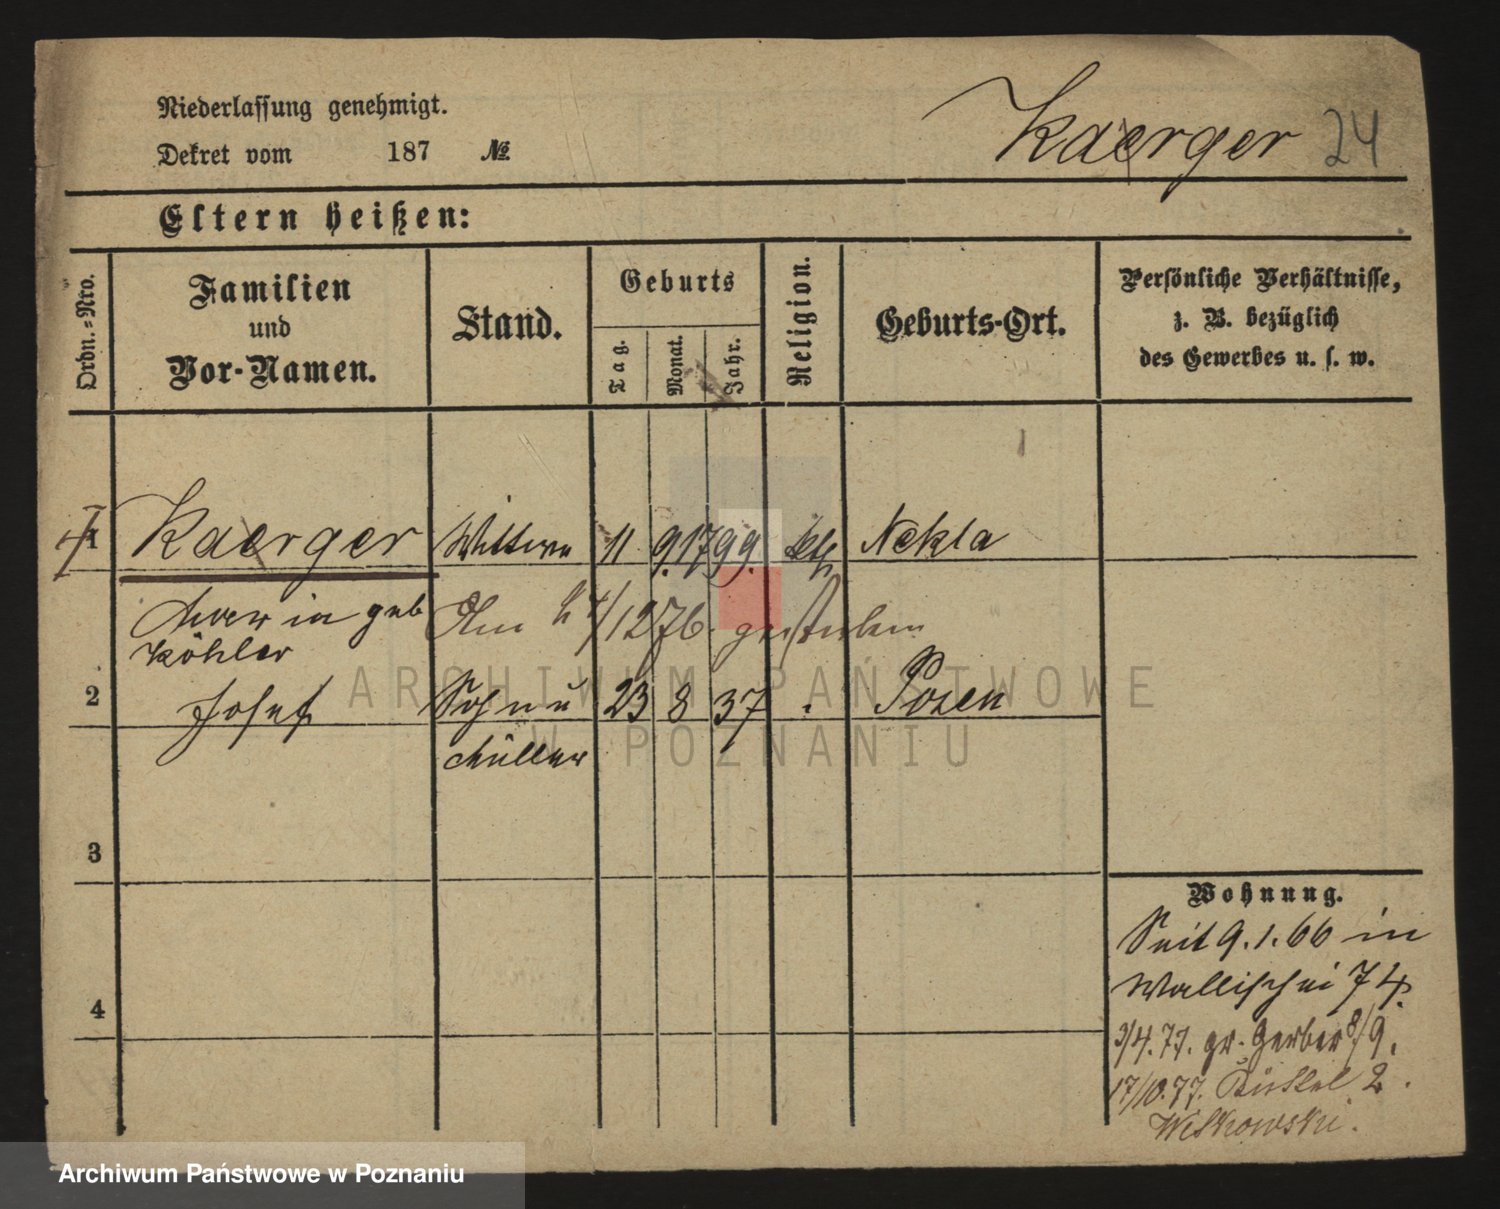 Niederlassung genehmigt.
Dekret vom 187 №
Kaerger 24
Eltern heißen:
Ordn.=Nro.
Familien und Vor-Namen.
Stand.
Geburts
Tag.
Monat.
Jahr.
Religion.
Geburts-Ort.
Persönliche Verhältnisse,
z. B. bezüglich
des Gewerbes u. s. w.
1 Kaerger Wittwe 11 9. 1799. kth Nekla
geb Köhler
Am 24/12 76. gestorben
2 Josef Sohn u 23 8 37 Posen
Müller
3
4
Wohnung.
Seit 9. 1. 66 in
Wallischei 74.
3/4. 77. gr. Gerber 8/9.
17/10. 77. Büttel 2.
Witkowski.
ARCHIWUM PAŃSTWOWE
W POZNANIU
Archiwum Państwowe w Poznaniu